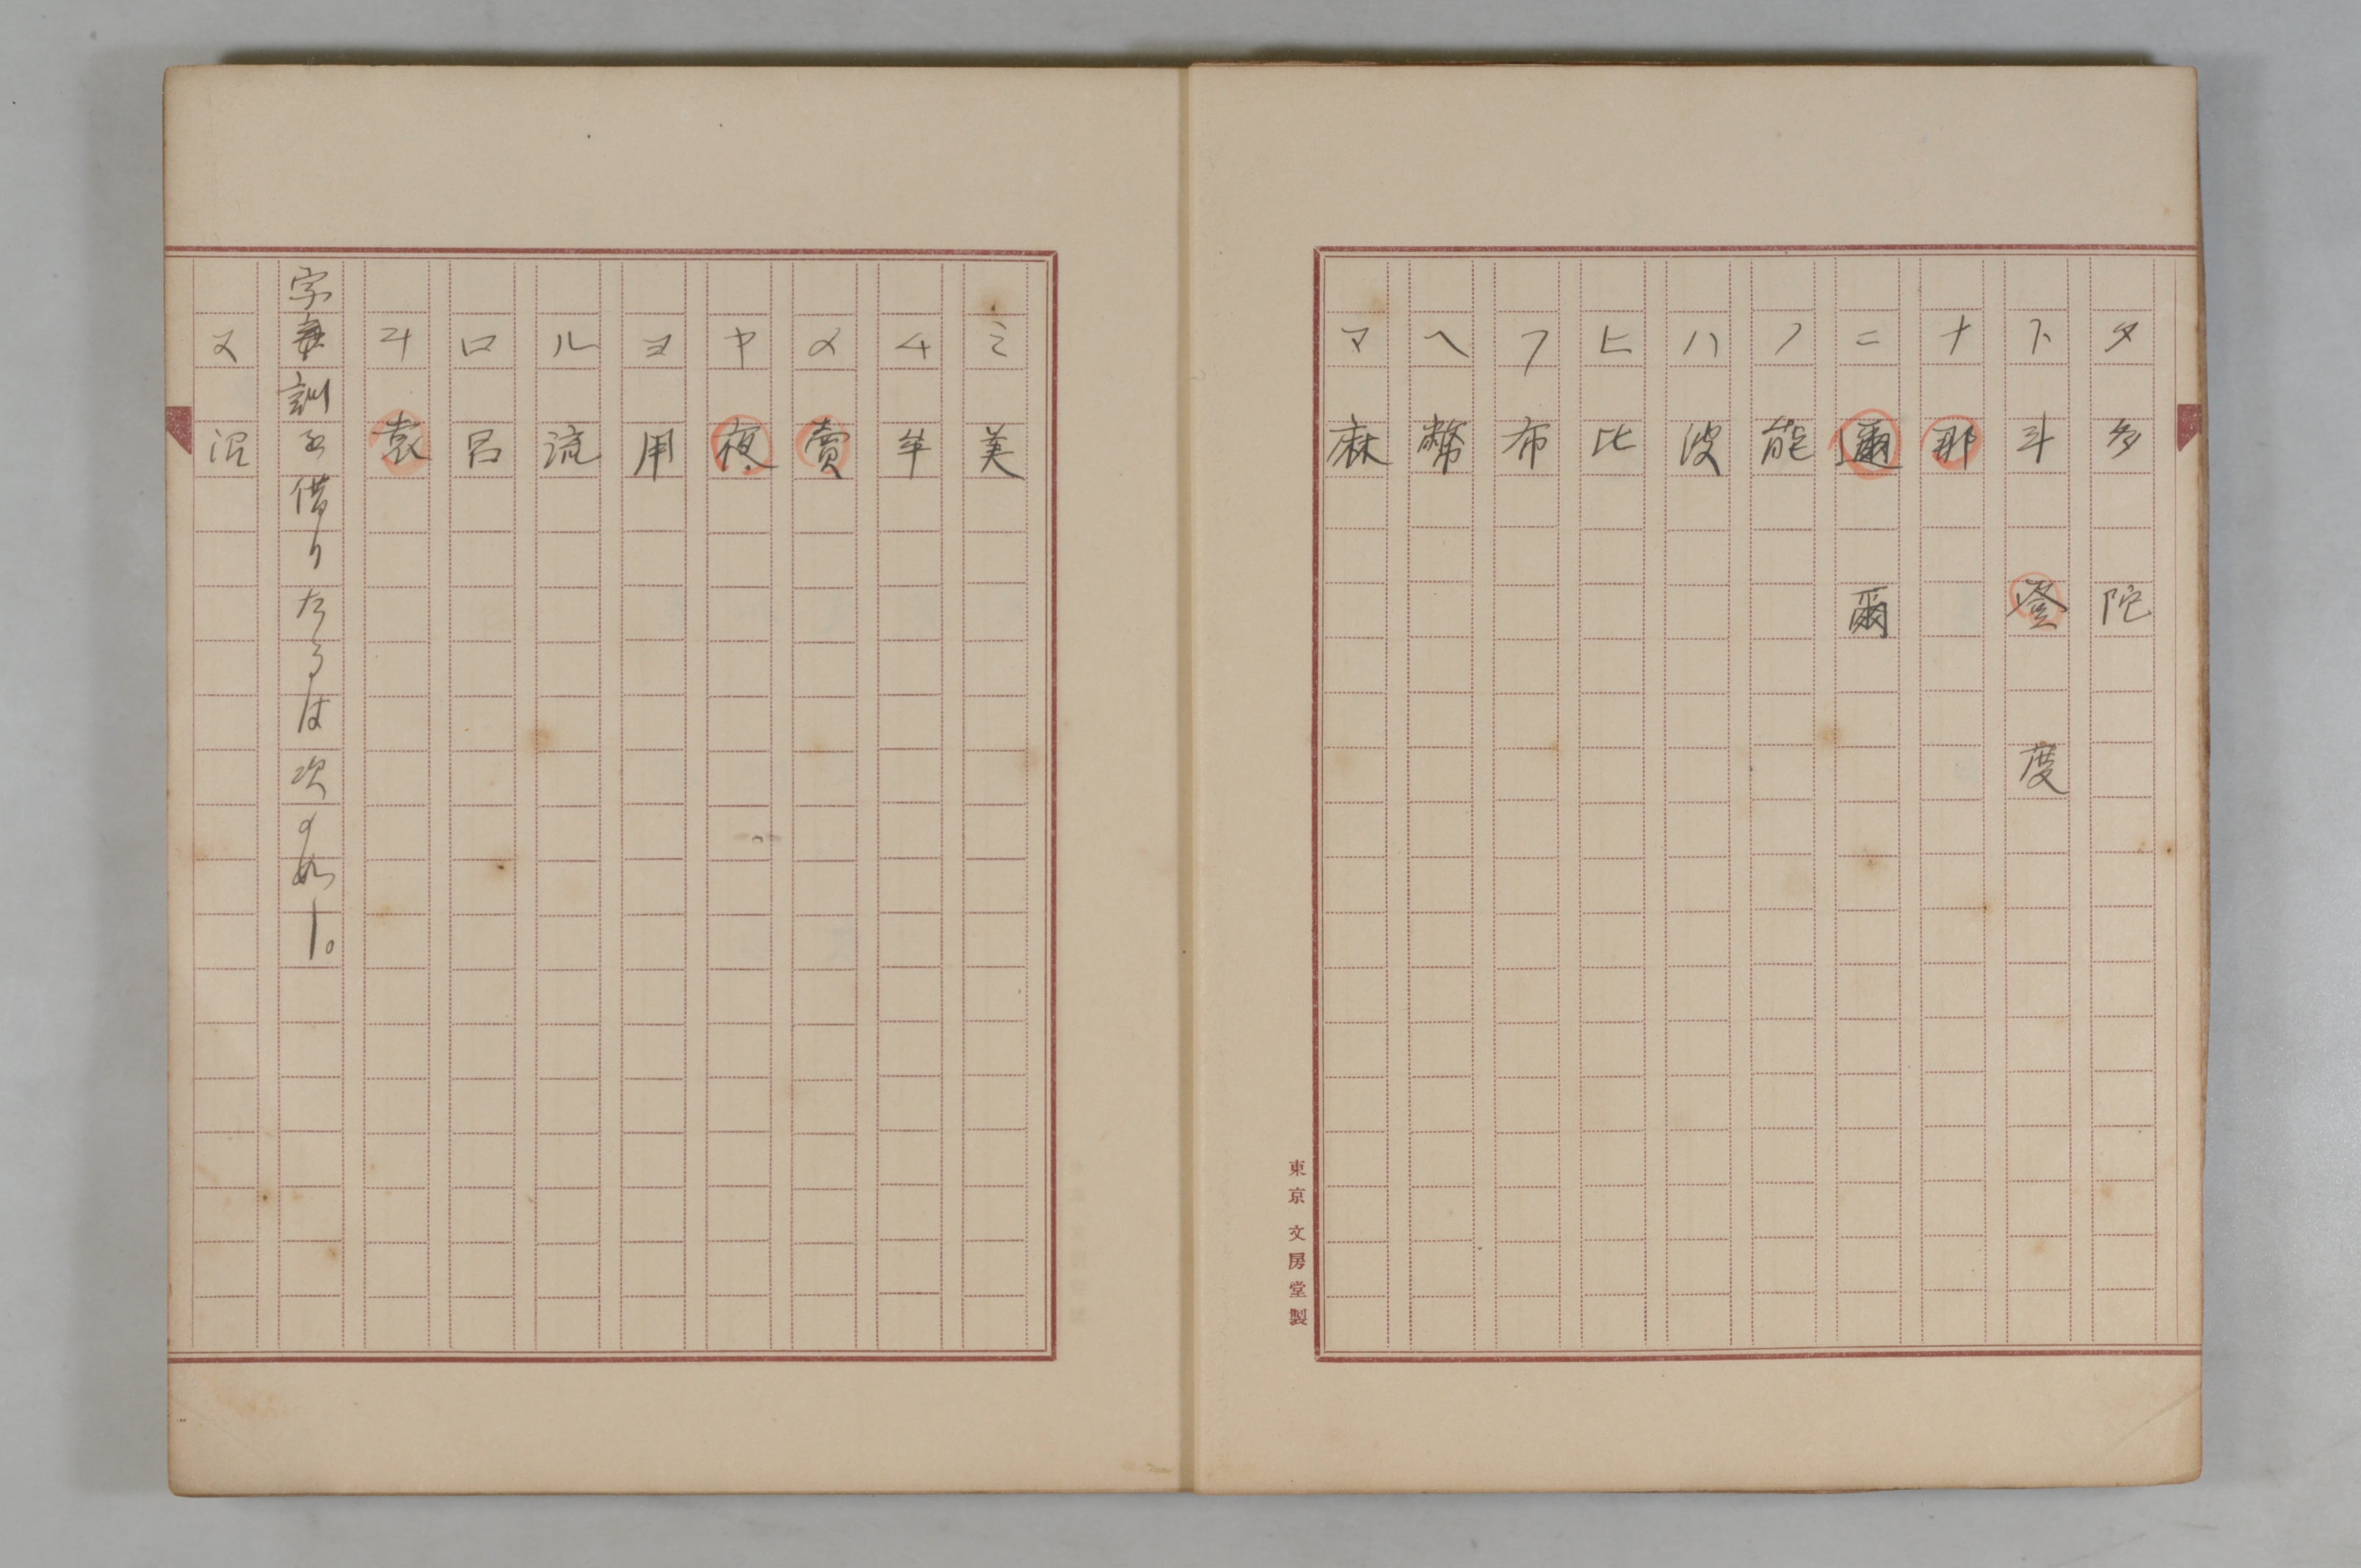 タ 多 陀
ト 斗 登 度
ナ 那
ニ 邇 爾
ノ 能
ハ 波
ヒ 比
フ 布
ヘ 幣
マ 麻
東京 文房堂製
ミ 美
ム 牟
メ 賣
ヤ 夜
ヨ 用
ル 流
ロ 呂
ヲ 袁
字訓を借りたるは次の如し。
ヌ 沼